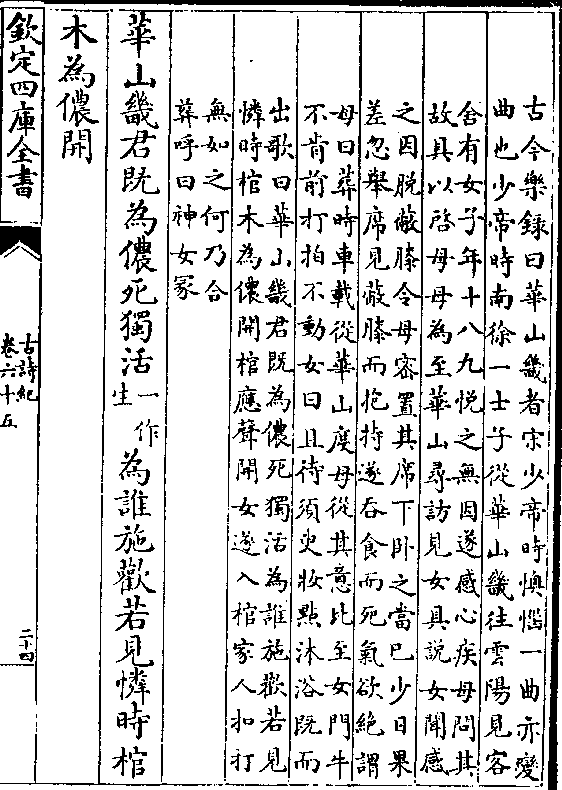 古今樂録曰華山畿者宋少帝時懊惱一曲亦變
曲也少帝時南徐一士子從華山畿往雲陽見客
舍有女子年十八九悦之無因遂感心疾母問其
故具以啓母母為至華山尋訪見女具說女聞感
之因脱蔽膝令母密置其席下卧之當已少日果
差忽舉席見蔽膝而抱持遂吞食而死氣欲絕謂
母曰葬時車載從華山度母從其意比至女門牛
不肯前打拍不動女曰且待須臾妝點沐浴既而
出歌曰華山畿君既為儂死獨活為誰施歡若見
憐時棺木為儂開棺應聲開女遂入棺家人扣打
無如之何乃合
葬呼曰神女冢
華山畿君既為儂死獨活一作生為誰施歡若見憐時棺
木為儂開
欽定四庫全書
古詩紀
卷六十五
二十四